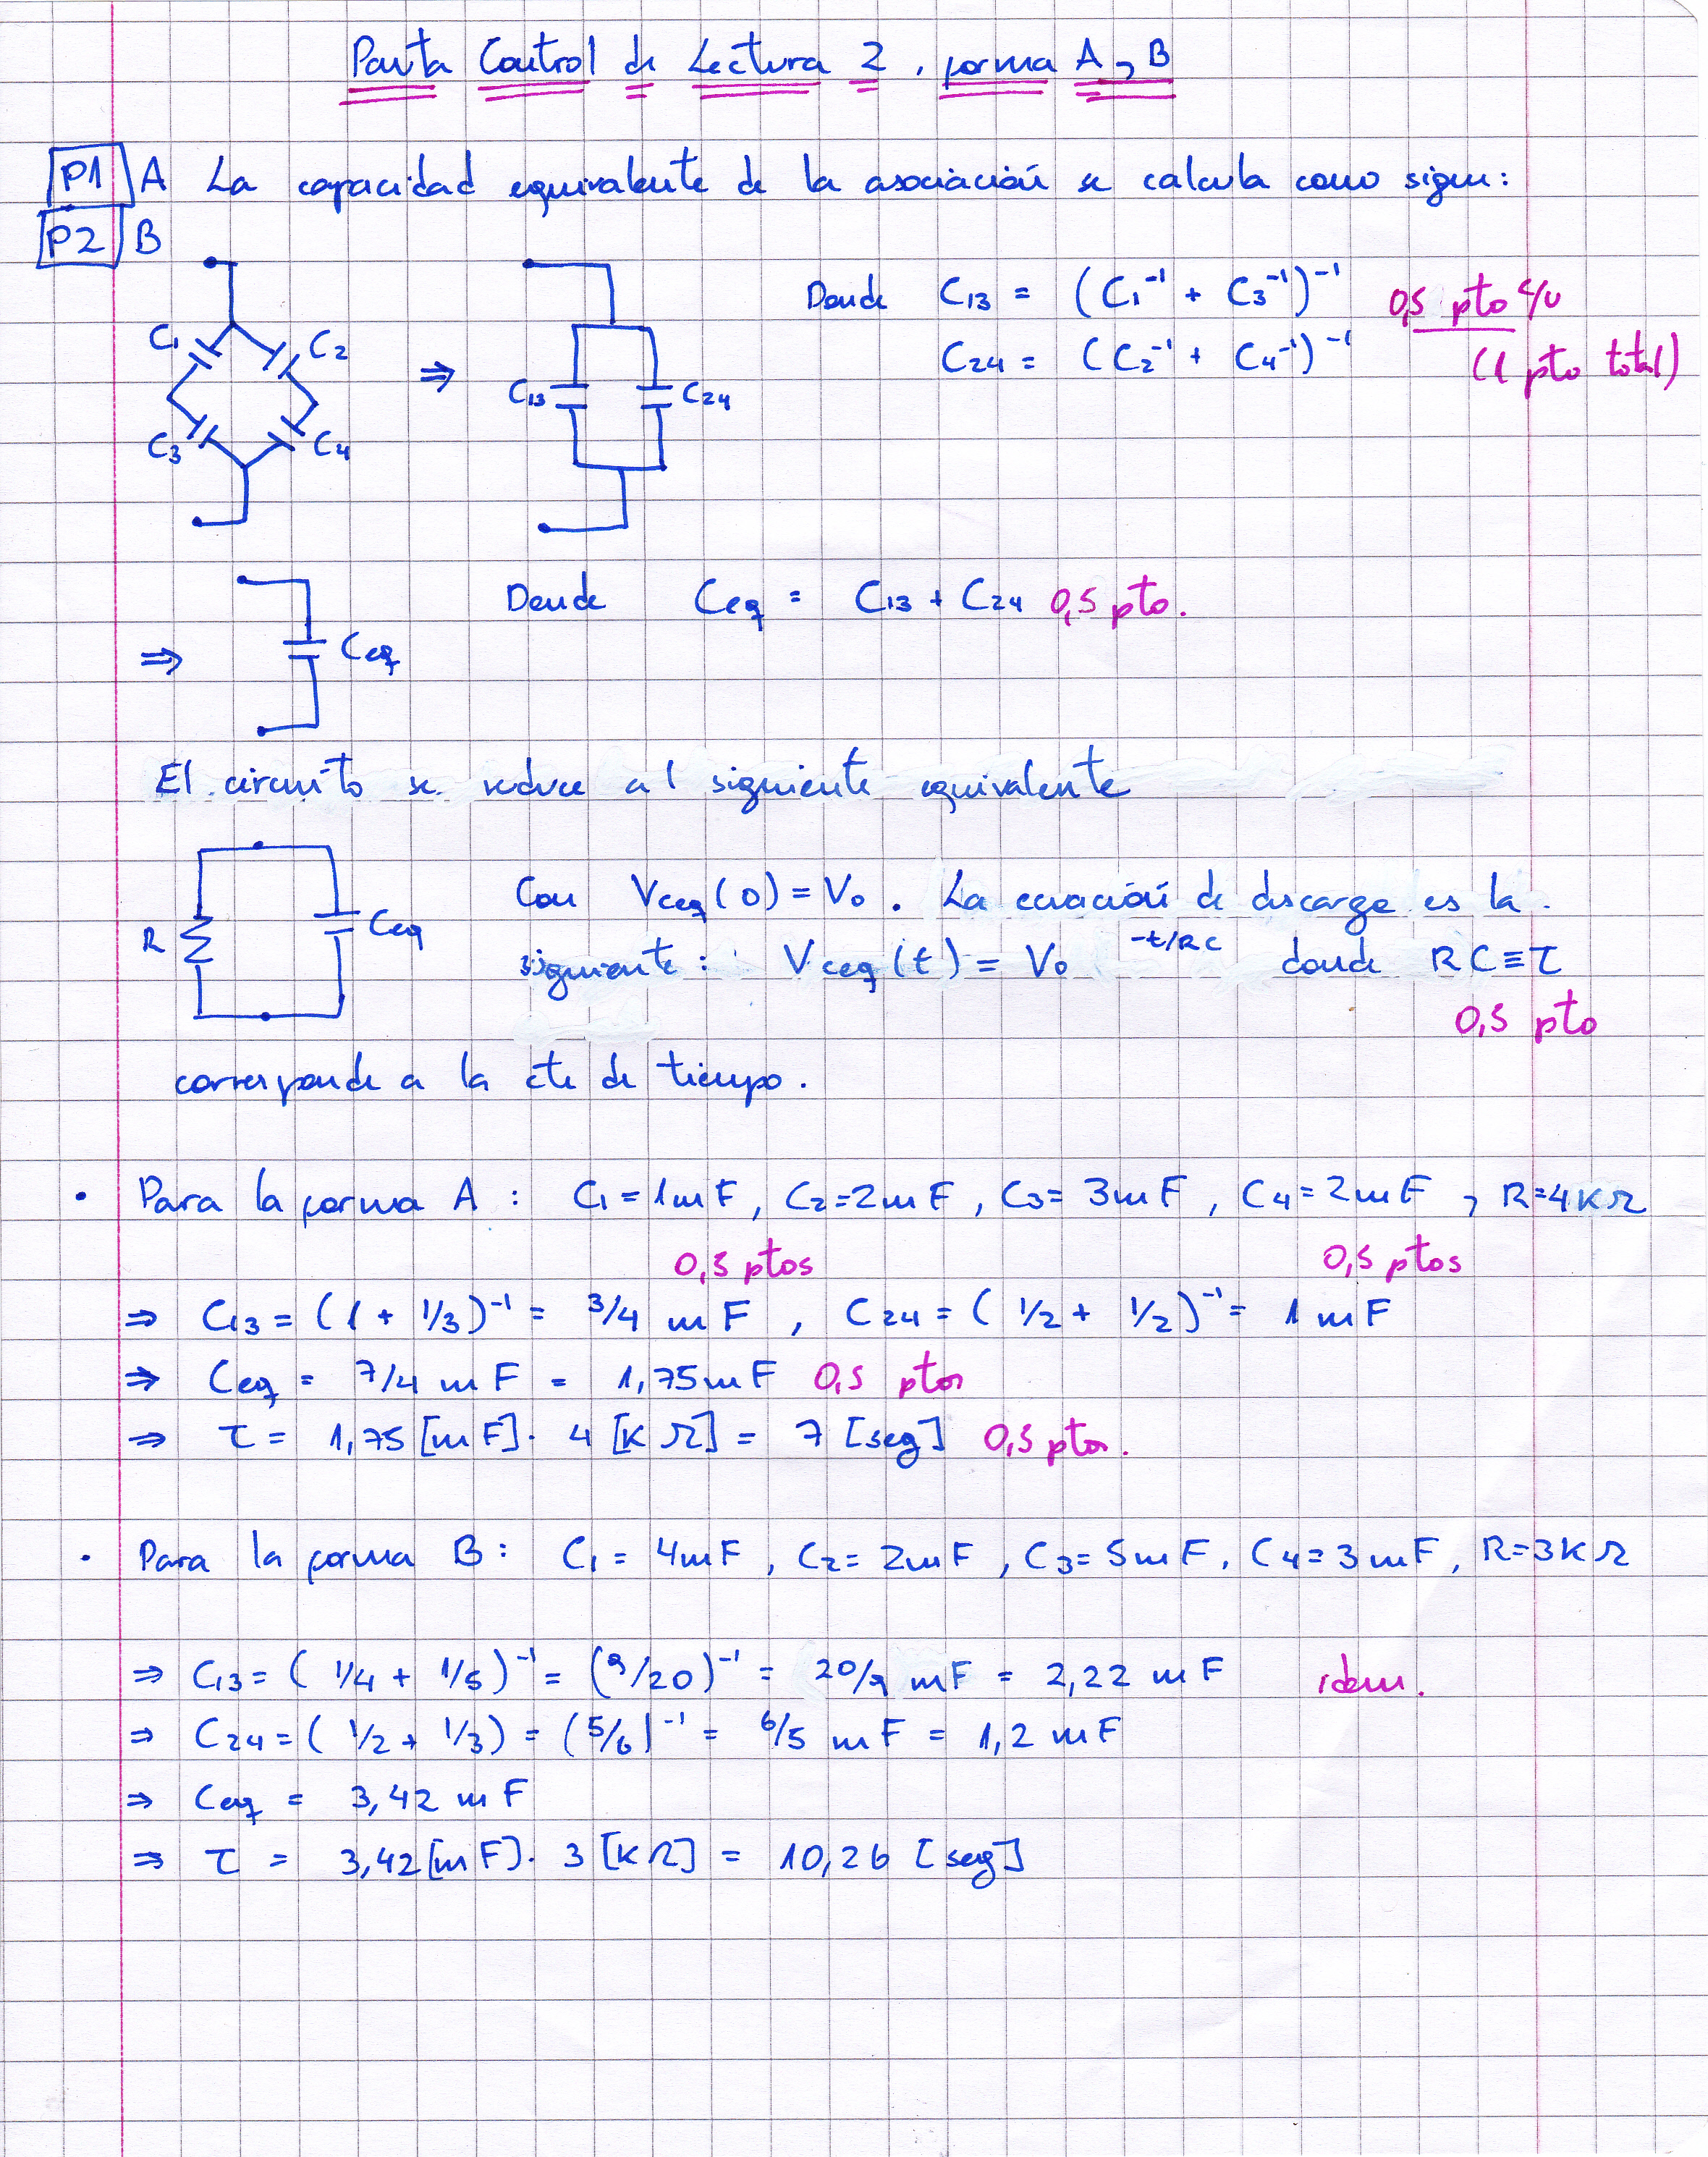 Pauta Control de Lectura 2, forma A y B
P1 A La capacidad equivalente de la asociación se calcula como sigue:
P2 B
C1 C2 C3 C4 ⇒ C13 C24
Donde C13 = (C1⁻¹ + C3⁻¹)⁻¹ 0,5 pto c/u
C24 = (C2⁻¹ + C4⁻¹)⁻¹ (1 pto total)
⇒ Ceq Donde Ceq = C13 + C24 0,5 pto.
El circuito se reduce al siguiente equivalente
R Ceq
Con Vceq(0) = V0. La ecuación de descarga es la
siguiente: Vceq(t) = V0 ⁻ᵗ/ᴿᶜ donde RC ≡ τ
0,5 pto
corresponde a la cte de tiempo.
• Para la forma A: C1 = 1mF, C2 = 2mF, C3 = 3mF, C4 = 2mF, R = 4KΩ
0,5 ptos 0,5 ptos
⇒ C13 = (1 + 1/3)⁻¹ = 3/4 mF, C24 = (1/2 + 1/2)⁻¹ = 1 mF
⇒ Ceq = 7/4 mF = 1,75mF 0,5 ptos
⇒ τ = 1,75 [mF]. 4 [KΩ] = 7 [seg] 0,5 ptos.
• Para la forma B: C1 = 4mF, C2 = 2mF, C3 = 5mF, C4 = 3mF, R = 3KΩ
⇒ C13 = (1/4 + 1/5)⁻¹ = (9/20)⁻¹ = 20/9 mF = 2,22 mF idem.
⇒ C24 = (1/2 + 1/3) = (5/6)⁻¹ = 6/5 mF = 1,2 mF
⇒ Ceq = 3,42 mF
⇒ τ = 3,42 [mF]. 3 [KΩ] = 10,26 [seg]